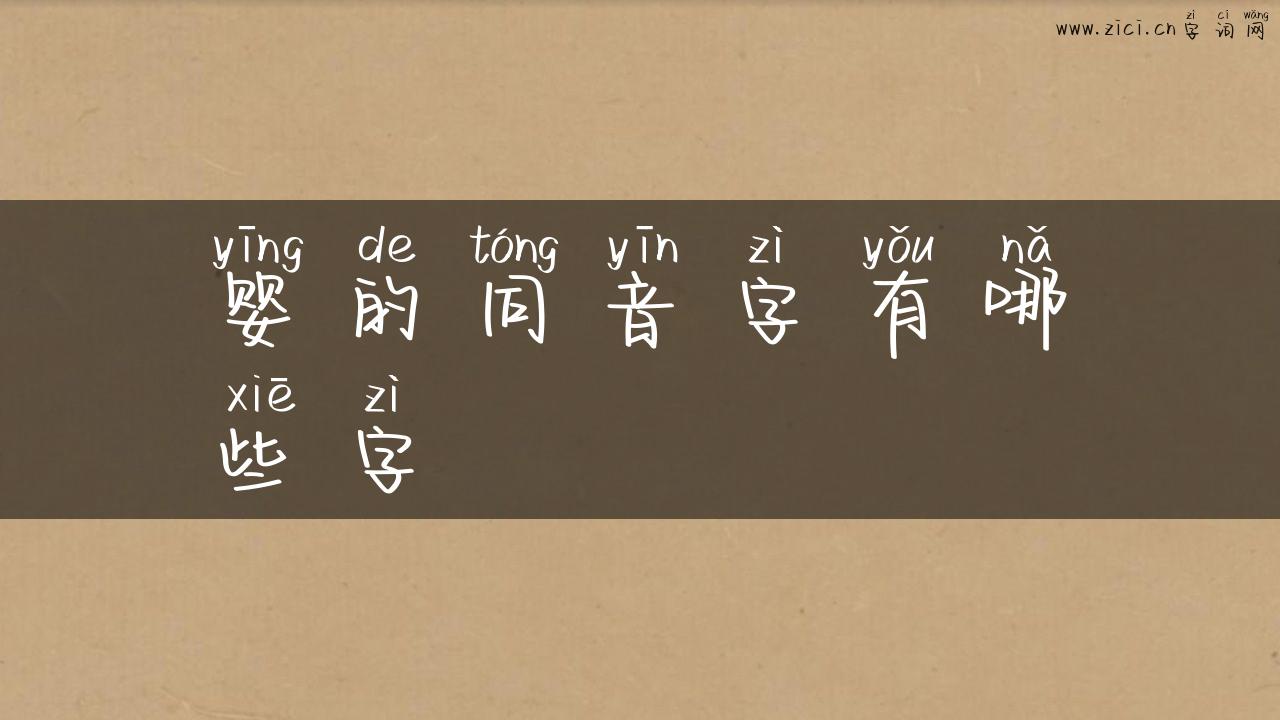 zì cí wǎng
www.zici.cn 字词网
yīng de tóng yīn zì yǒu nǎ
婴的同音字有哪
xiē zì
些字